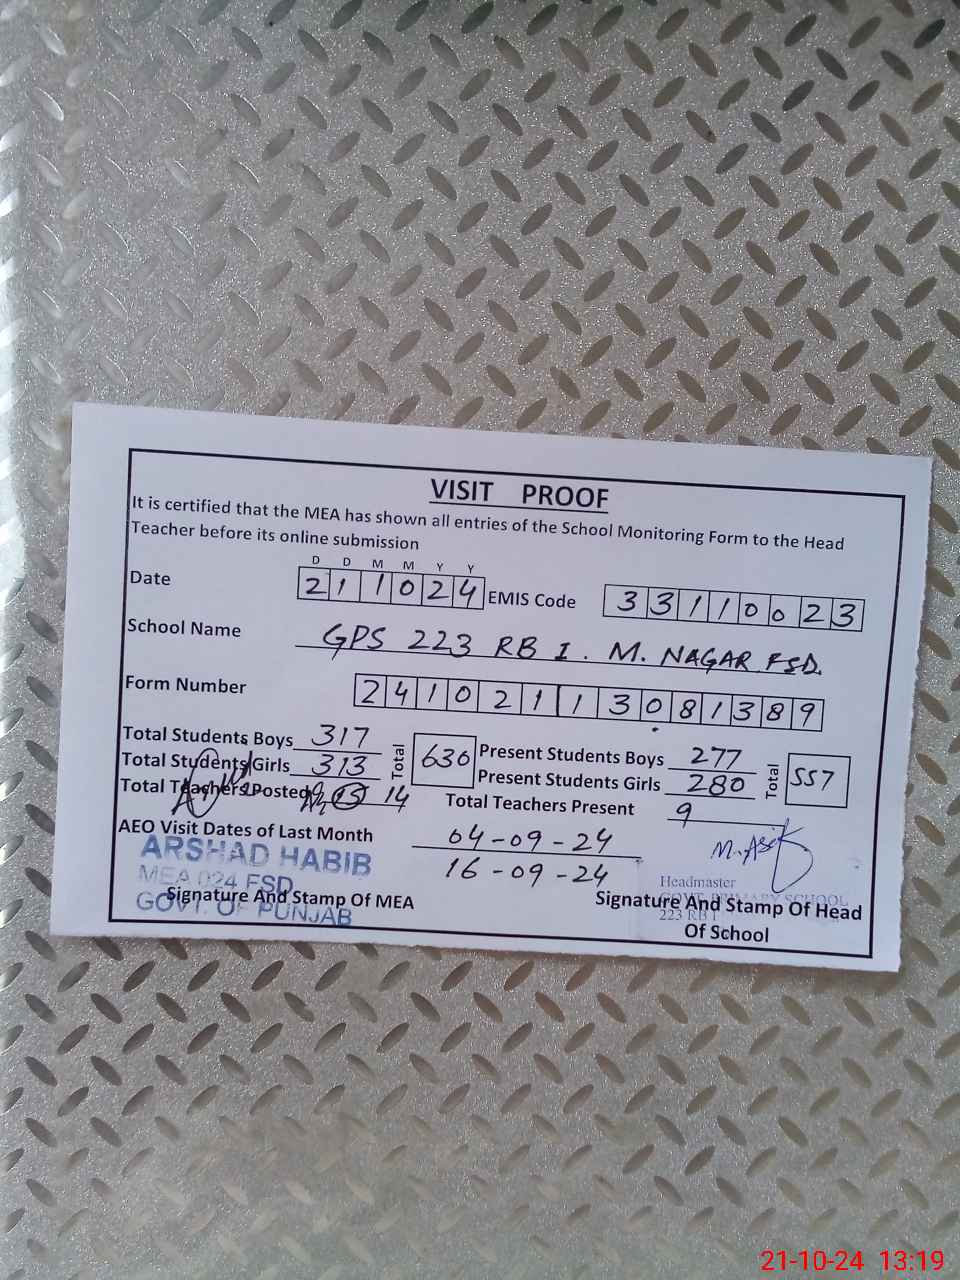 VISIT PROOF
It is certified that the MEA has shown all entries of the School Monitoring Form to the Head
Teacher before its online submission
D D M M Y Y
Date 211024 EMIS Code 33110023
School Name GPS 223 RB I. M. NAGAR FSD.
Form Number 24102113081389
Total Students Boys 317 Total 630 Present Students Boys 277 Total 557
Total Students Girls 313 Present Students Girls 280
Total Teachers Posted 15 14 Total Teachers Present 9
AEO Visit Dates of Last Month 04-09-24
16-09-24
M. Asif
ARSHAD HABIB
MEA 024 FSD
GOVT. OF PUNJAB
Signature And Stamp Of MEA
Headmaster
GOVT. PRIMARY SCHOOL
223 RB I
Signature And Stamp Of Head
Of School
21-10-24 13:19